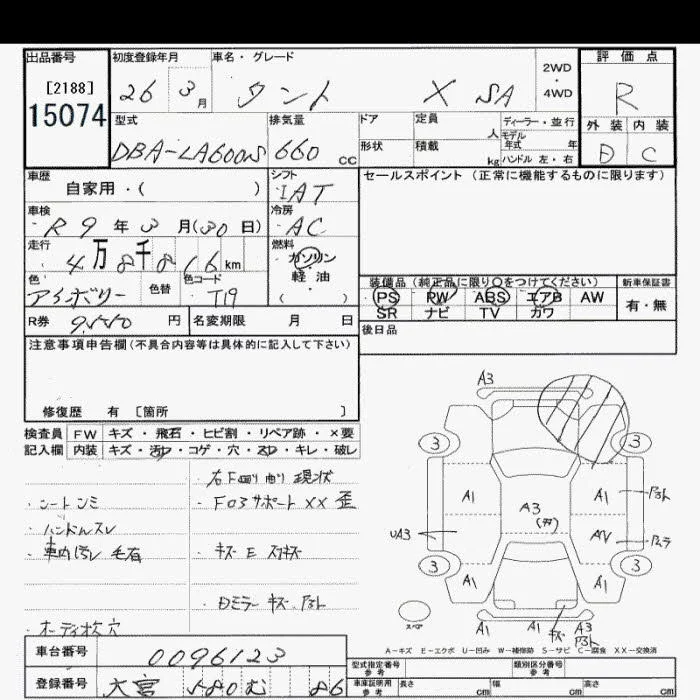 出品番号 初度登録年月 車名・グレード 評価点
[2188] 26 3月 タント X SA 2WD・4WD R
15074 型式 排気量 ドア 定員 人 ディーラー・並行 外装 内装
DBA-LA600S 660cc 形状 積載 kg モデル年式 年 ハンドル 左・右 D C
車歴 自家用・( ) シフト IAT セールスポイント(正常に機能するものに限ります)
車検 R 9年3月(30日) 冷房 AC
走行 4万8千816km 燃料 ガソリン 軽油 ( )
色 アイボリー 色替 色コード T19 装備品(純正品に限り○をつけてください) 新車保証書
PS PW ABS エアB AW 有・無
SR ナビ TV カワ
R券 9,550円 名変期限 月 日 後日品
注意事項申告欄(不具合内容等は具体的に記入して下さい)
修復歴 有 〔箇所 〕
検査員 FW キズ・飛石・ヒビ割・リペア跡・×要
記入欄 内装 キズ・汚れ・コゲ・穴・スレ・キレ・破し
現状
・シートシミ ・F03サポートXX 歪
・ハンドルスレ
・車内汚レ 毛有 ・キズ E
・日ミラーキズ
・オーディオ穴
A3
3 3
A1 A3 A1
UA3 AV
3 3
A1 A1
スペア キズ A1 A1 A3
A-キズ E-エクボ U-凹み W-補修跡 S-サビ C-腐食 XX-交換済
車台番号 0096123
登録番号 大宮 580 む 86
型式指定番号 参考 類別区分番号 参考
車庫証明用 参考 長さ cm 幅 cm 高さ cm